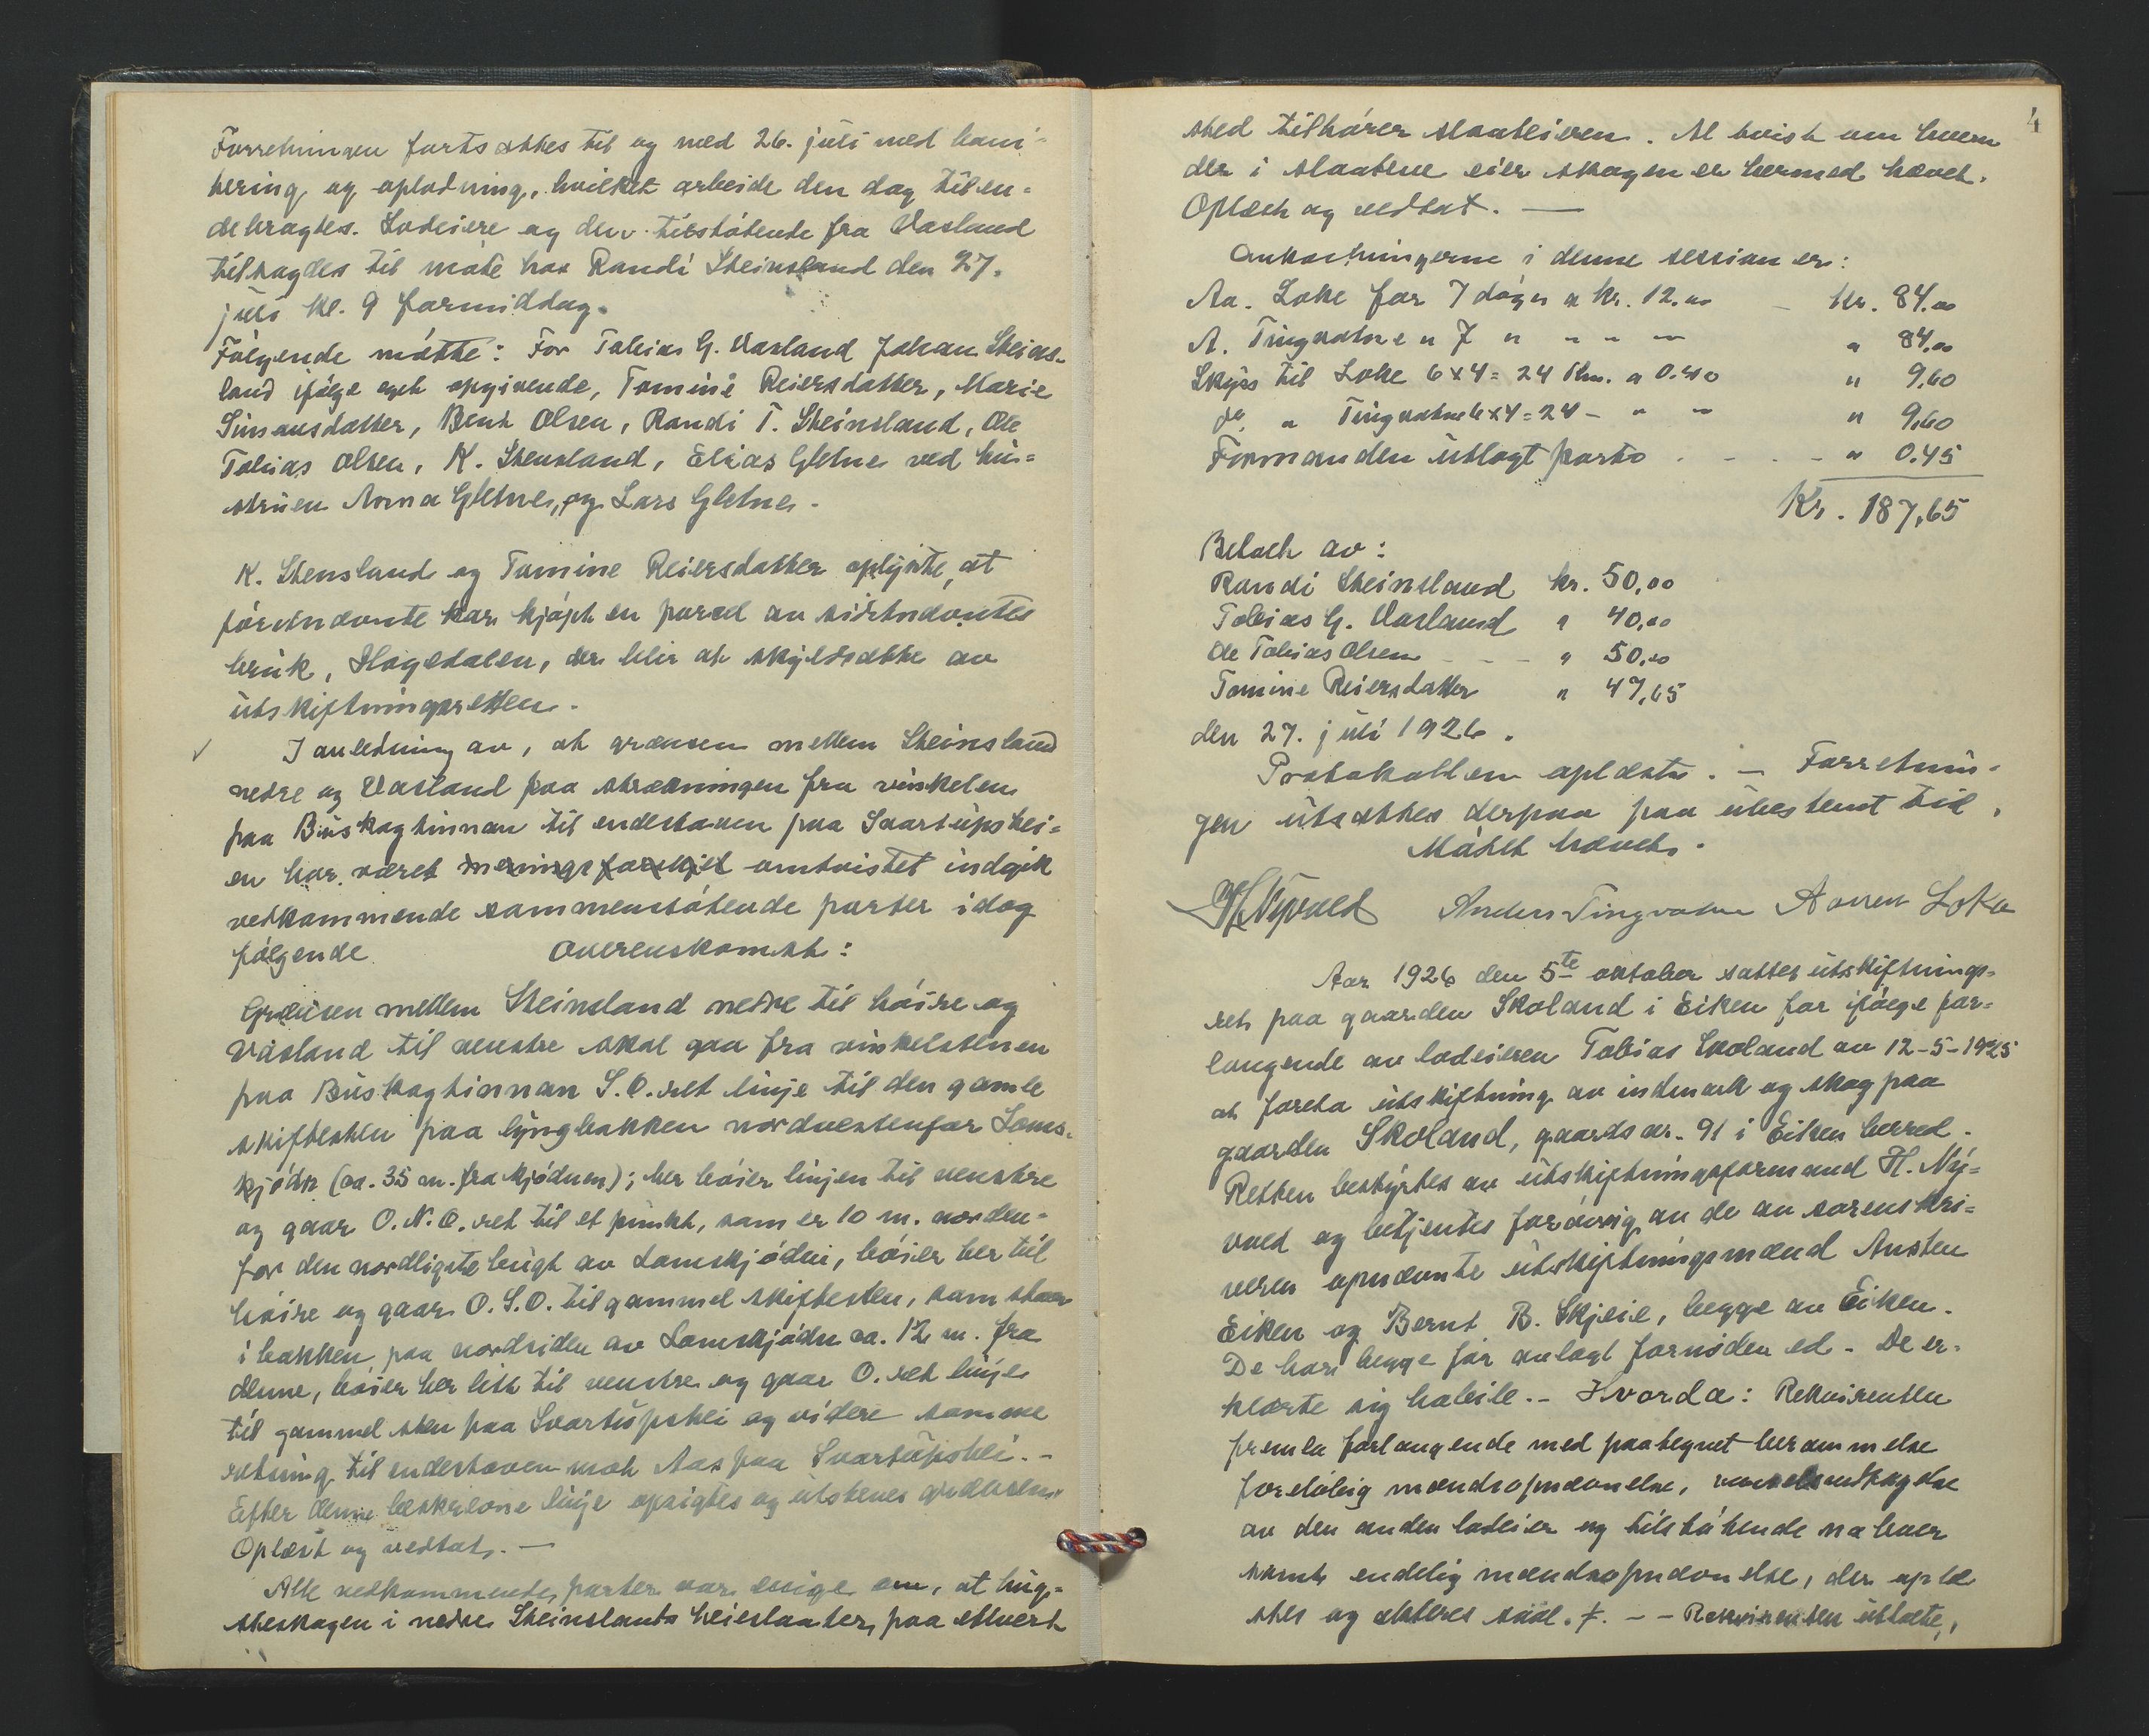 Forretningen fortsættes til og med 26. juli med boni-
tering og oplodning, hvilket arbeide den dag tilen-
debragtes. Lodeiere og den tilstøtende fra Vasland
tilsagdes til møte hos Randi Steinsland den 27.
juli kl. 9 formiddag.
Følgende møtte: For Tobias G. Vasland Johan Steins-
land ifølge eget opgivende, Tomine Reiersdatter, Marie
Simonsdatter, Bent Olsen, Randi T. Steinsland, Ole
Tobias Olsen, K. Stensland, Elias Gletne ved hu-
struen Anna Gletne, og Lars Gletne.
K. Stensland og Tomine Reiersdatter oplyste, at
førstnævnte har kjøpt en parcel av sidstnævntes
bruk, Hagedalen, der blir at skyldsætte av
utskiftningsretten.
I anledning av, at grænsen mellem Steinsland
nedre og Vasland paa strækningen fra vinkelen
paa Buskagtinnan til endestaven paa Svartupshei-
en har været meningsforskjel omtvistet indgik
vedkommende sammenstøtende parter idag
følgende overenskomst:
Grænsen mellem Steinsland nedre til høire og
Vasland til venstre skal gaa fra vinkelstenen
paa Buskagtinnan S.O. ret linje til den gamle
skiftesten paa lyngbakken nordvestenfor Loms-
kjødn (ca. 35 m. fra kjødnen); her bøier linjen til venstre
og gaar O.N.O. ret til et punkt, som er 10 m. norden-
for den nordligste bugt av Lomskjødn, bøier her til
høire og gaar O.S.O. til gammel skiftesten, som staar
i bakken paa nordsiden av Lomskjødn ca. 12 m. fra
denne, bøier her litt til venstre og gaar O. ret linje
til gammel sten paa Svartupshei og videre samme
retning til endestaven mot Aas paa Svartupshei.-
Efter denne beskrevne linje opsigtes og utstenes grænsen.
Oplæst og vedtat. —
Alle vedkommende parter var enige om, at hug-
steskogen i nedre Steinslands heieslaatter, paa ethvert
4
sted tilhører slaateieren. Al tvist om hvem
der i slaatene eier skogen er hermed hævet.
Oplæst og vedtat. —
Omkostningerne i denne session er:
Aa. Loke for 7 dager a kr. 12.00 - kr. 84.00
A. Tingvatne " 7 " " " " " 84,00
Skyss til Loke 6x4= 24 km. a 0.40 " 9,60
do. " Tingvatne 6x4=24 - " " " 9,60
Formanden utlagt porto . - . - " 0.45
Kr. 187,65
Betalt av:
Randi Steinsland kr. 50,00
Tobias G. Vasland " 40,00
Ole Tobias Olsen - - - " 50,00
Tomine Reiersdatter " 47,65
den 27. juli 1926.
Protokollen oplæstes. — Forretnin-
gen utsættes derpaa paa ubestemt tid.
Møtet hævet.
H Nyvold Anders Tingvatne Aanen Loke
Aar 1926 den 5te oktober sattes utskiftnings-
ret paa gaarden Skoland i Eiken for ifølge for-
langende av lodeieren Tobias Skoland av 12-5-1925
at foreta utskiftning av indmark og skog paa
gaarden Skoland, gaards nr. 91 i Eiken herred.
Retten bestyrtes av utskiftningsformand H. Ny-
vold og betjentes forøvrig av de av sorenskri-
veren opnævnte utskiftningsmænd Austen
Eiken og Bernt B. Skjeie, begge av Eiken.
De har begge før avlagt fornøden ed. - De er-
klærte sig habile.- Hvorda: Rekvirenten
fremla forlangende med paategnet berammelse
foreløbig mændsopnævnelse,
av den anden lodeier og tilstøtende naboer
samt endelig mændsopnævnelse, der oplæ-
stes og akteres saal. ƚ. - - Rekvirenten uttalte,